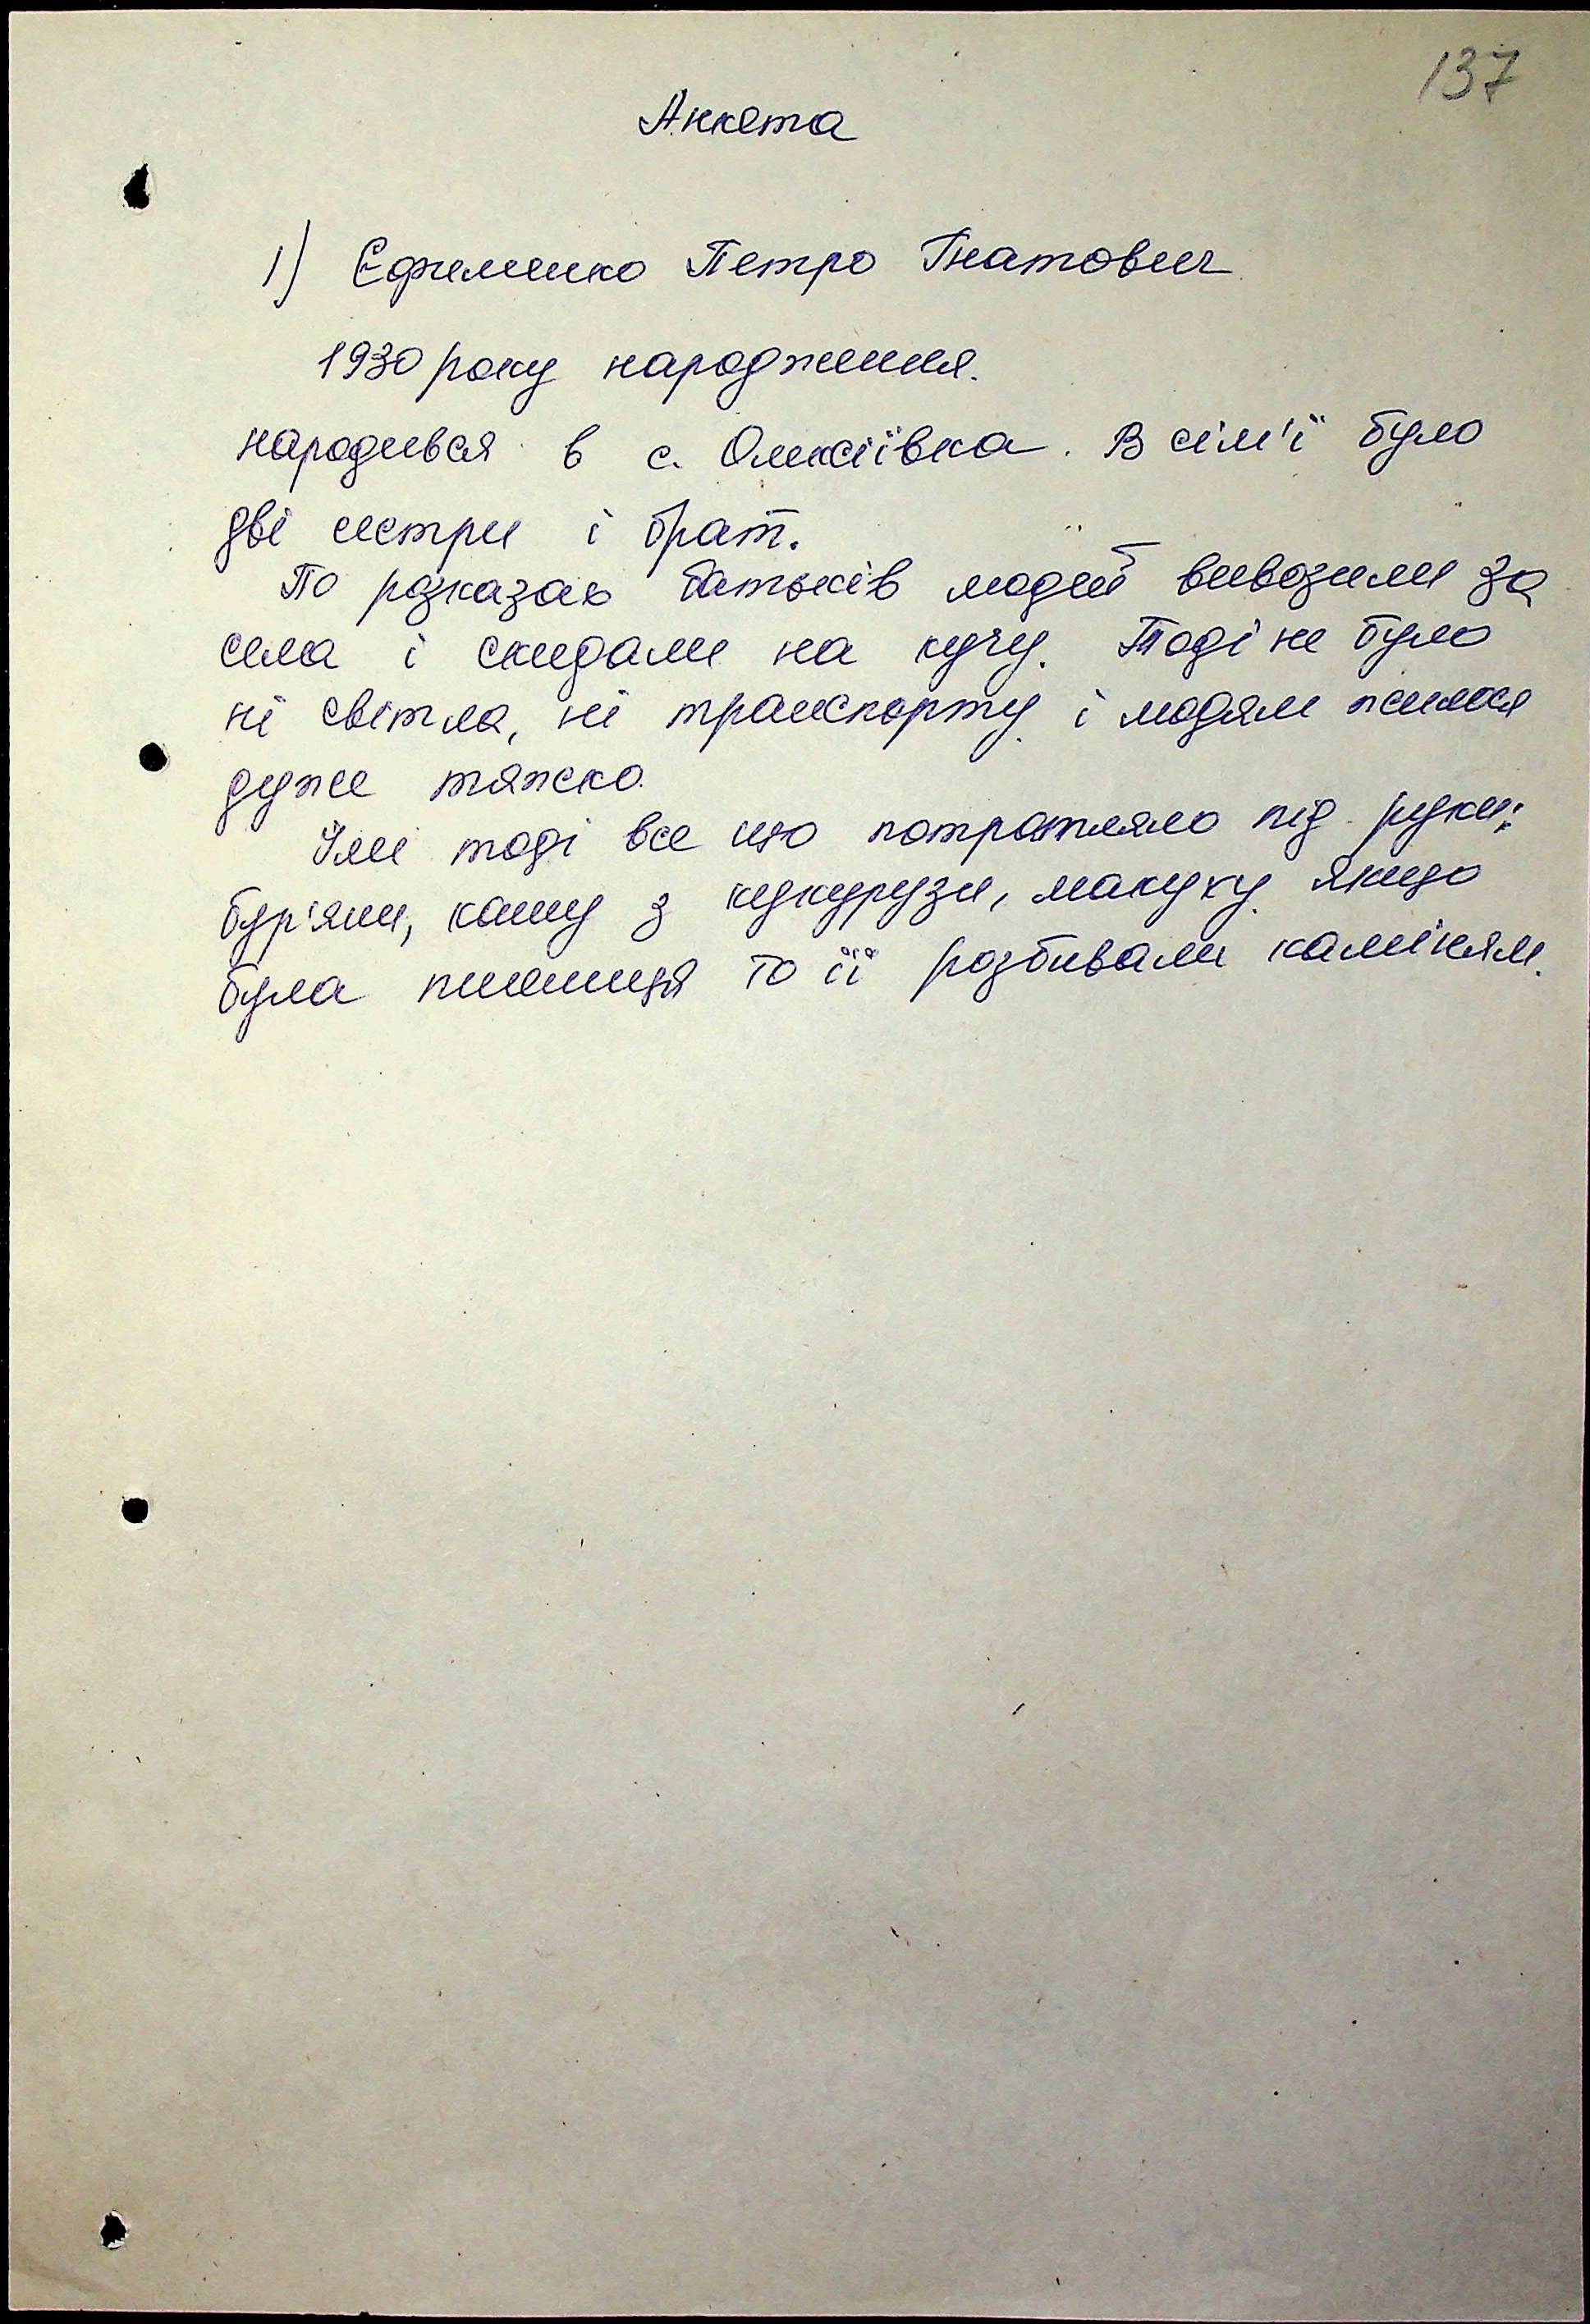 137
Анкета
1) Єфименко Петро Гнатович
1930 року народження.
народився в с. Олексіївка. В сім'ї було
дві сестри і брат.
По розказах батьків людей вивозили за
села і скидали на кучу. Тоді не було
ні світла, ні транспорту і людям жилося
дуже тяжко.
Їли тоді все що потрапляло під руки:
бур'яни, кашу з кукурузи, макуху. Якщо
була пшениця то її розбивали камінням.